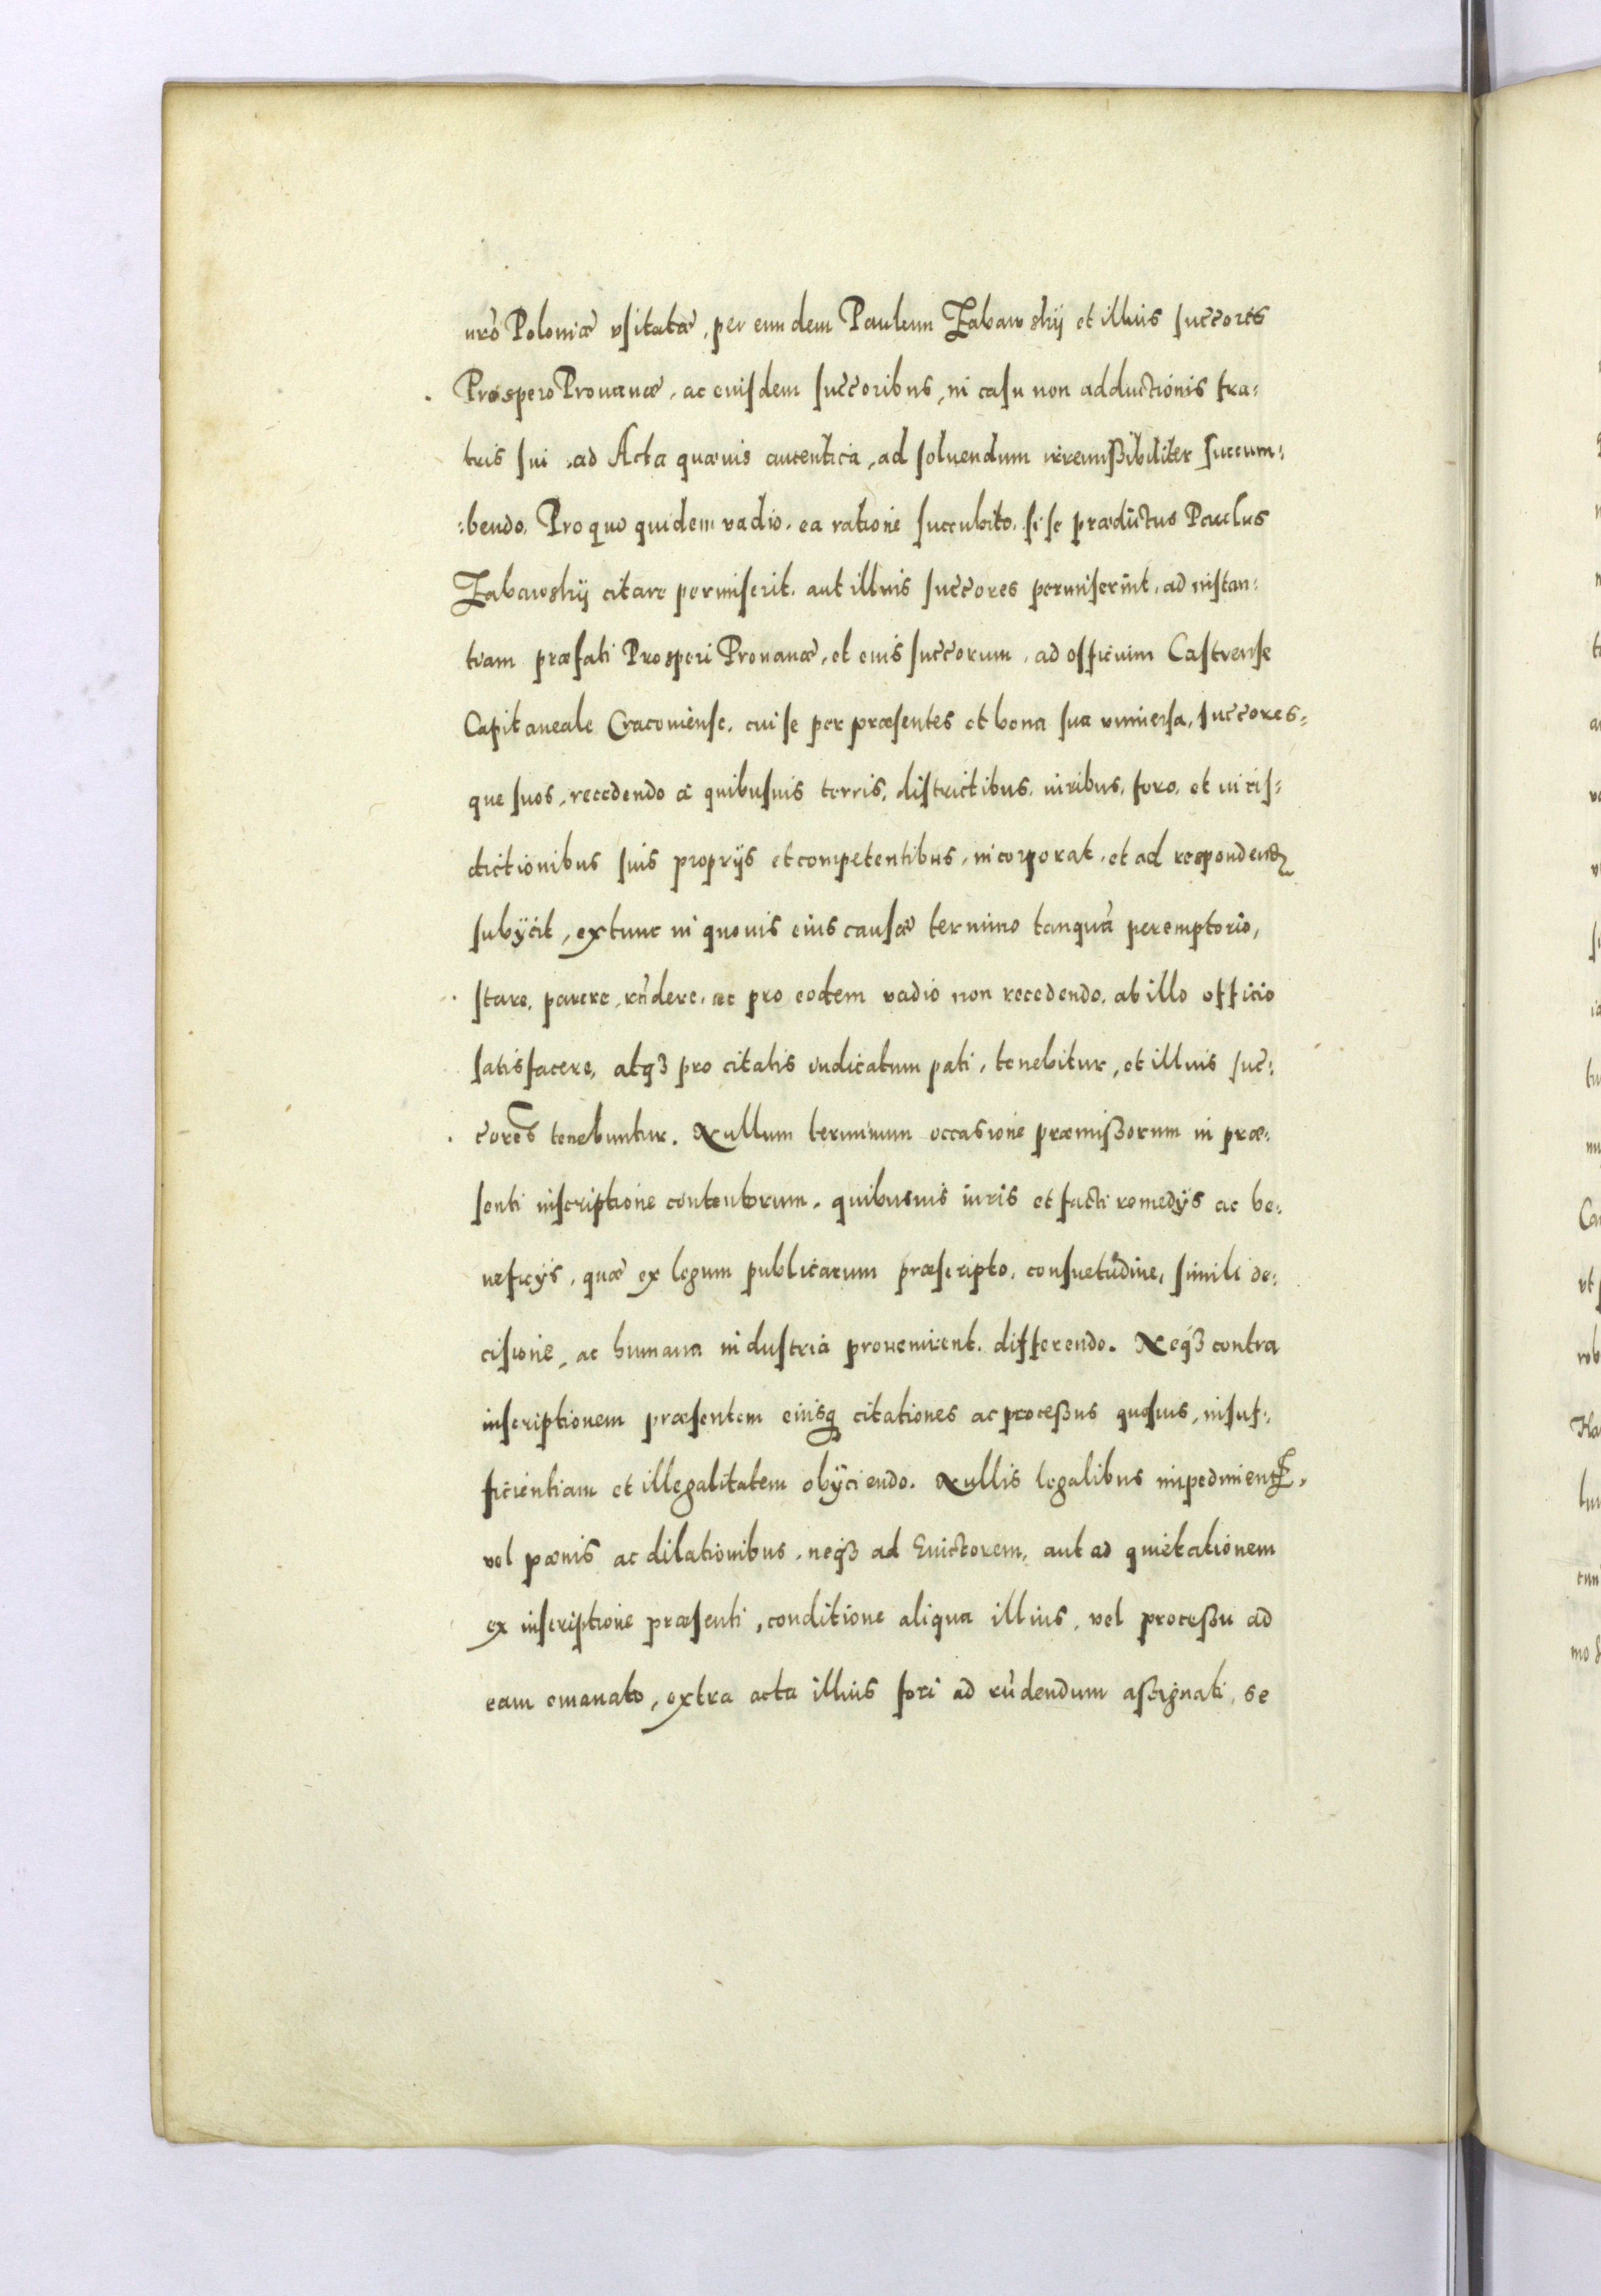 nrõ Poloniæ vsitatæ, per eundem Paulum Zabawskij et illius succores
Prospero Prouanæ, ac eiusdem succoribus, in casu non adductionis fra:
tris sui, ad Acta quæuis autentica, ad soluendum irremissibiliter succum:
:bendo. Pro quo quidem vadio, ea ratione succubito, si se prædictus Paulus
Zabawskij citare permiserit, aut illius succores permiserint, ad instan:
tiam præfati Prosperi Prouanæ, et eius succorum, ad officium Castrense
Capitaneale Cracouiense, cui se per præsentes et bona sua vniuersa, succores=
que suos, recedendo a quibusuis terris, districtibus, iuribus, foro, et iuris:
dictionibus suis proprijs et competentibus, incorporat, et ad respondend
subijcit, extunc in quouis eius causæ termino tanquã peremptorio,
stare, parere, rñdere, ac pro eodem vadio non recedendo, ab illo officio
satisfacere, atqȝ pro citatis iudicatum pati, tenebitur, et illius suc:
cores tenebuntur. Nullum terminum occasione præmissorum in præ:
senti inscriptione contentorum, quibusuis iuris et facti remedijs ac be:
neficijs, quæ ex legum publicarum præscripto, consuetudine, simili de:
cisione, ac humana industria prouenirent, differendo. Neqȝ contra
inscriptionem præsentem eiusq citationes ac processus quosuis, insuf:
ficientiam et illegalitatem obijciendo. Nullis legalibus impedimentꝭ,
vel pœnis ac dilationibus, neqȝ ad Euictorem, aut ad quietationem
ex inscriptione præsenti, conditione aliqua illius, vel processu ad
eam emanato, extra acta illius fori ad rñdendum assignati, se